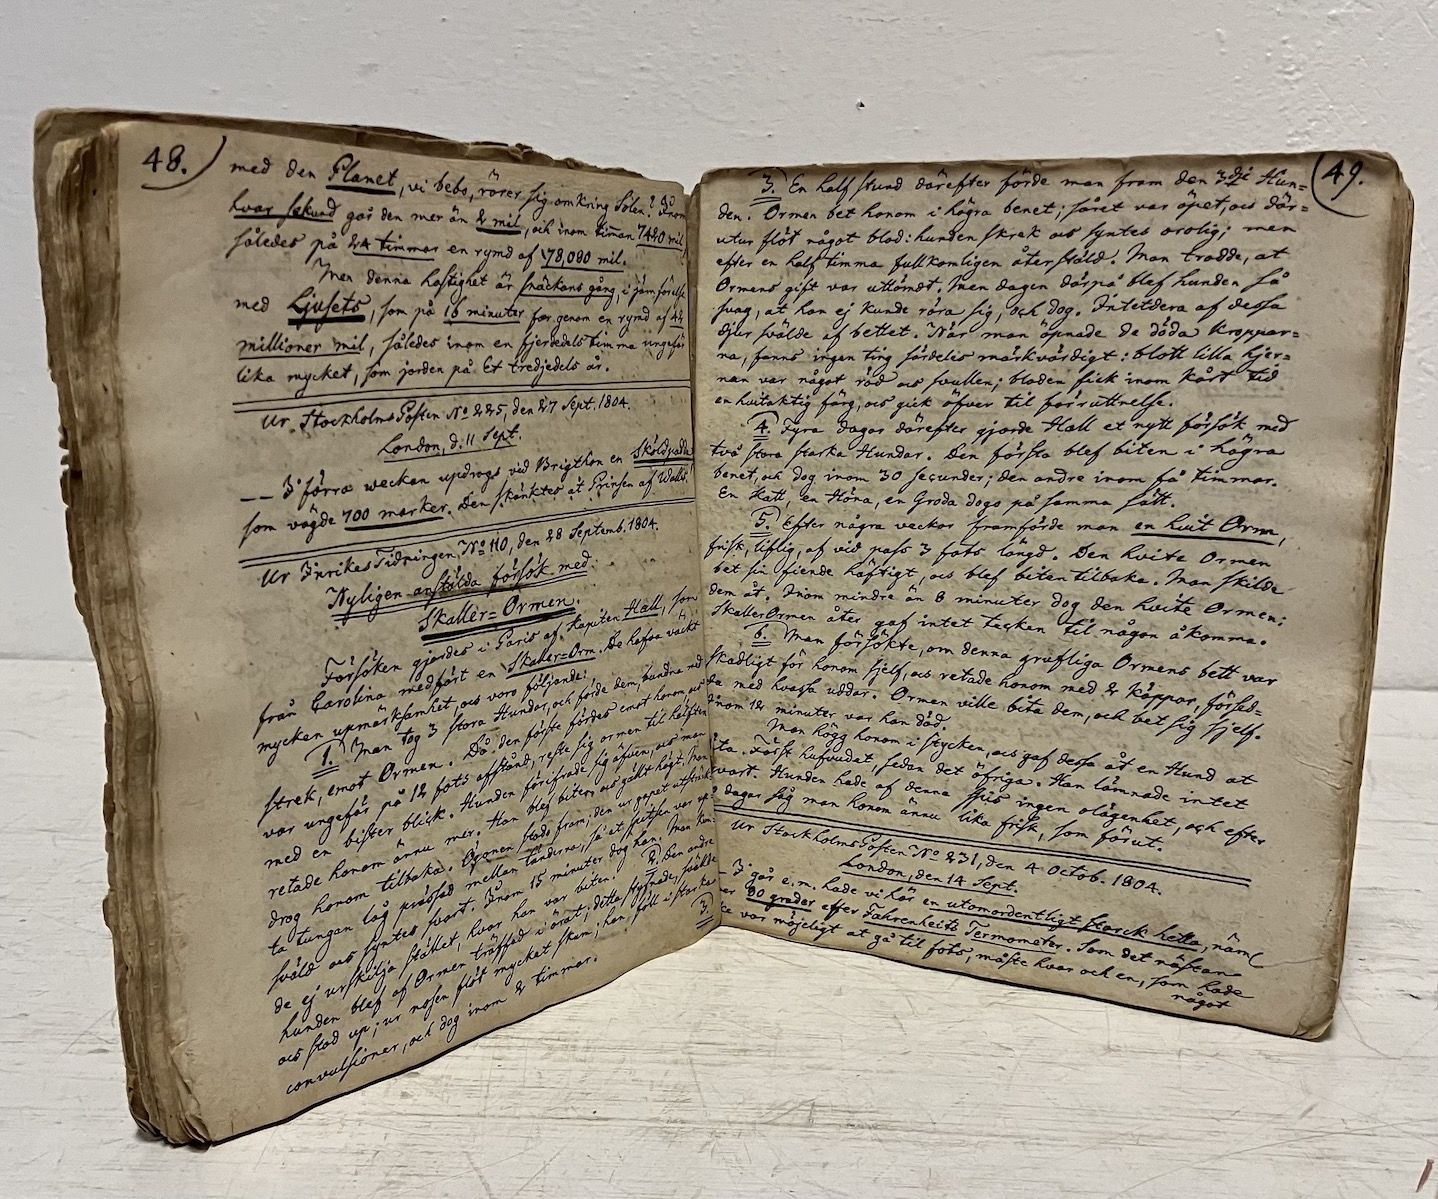 48.)
med den Planet, vi bebo, rörer sig omkring Solen? Inom
hvar sekund går den mer än 2 mil, och inom timan 7420 mil,
således på 24 timmar en rymd af 178,080 mil.
Men denna hastighet är snäckans gång, i jämförelse
med Ljusets, som på 16 minuter far genom en rymd af 44
millioner mil, således inom en fjerdedels timma ungefär
lika mycket, som jorden på et tredjedels år.
Ur StockholmsPosten No 225, den 27 Sept. 1804.
London, d. 11 Sept.
-- I förra weckan updrogs vid Brigthon en Sköldpadda
som vägde 700 marker. Den skänktes åt Prinsen af Wallis.
Ur Inrikes Tidningen No 110, den 28 Septemb. 1804.
Nyligen anstälda försök med
Skaller=Ormen.
Försöken gjordes i Paris af Kapiten Hall, som
från Carolina medfört en Skaller=Orm. De hafva väckt
mycken upmärksamhet, och voro följande:
1. Man tog 3 stora Hundar, och förde dem, bundna med
strek, emot Ormen. Då den förste fördes emot honom, och
var ungefär på 12 fots afstånd, reste sig ormen til hälften
med en bister blick. Hunden förifrade sig äfven, och man
retade honom ännu mer. Han blef biten, och gällt högt. Man
drog honom tilbaka. Ögonen stodo fram; den ur gapet utsträck
ta tungan låg prässad mellan tänderna, så at spitsen var up-
sväld och syntes svart. Inom 15 minuter dog han. Man kun-
de ej urskilja stället, hvar han var biten. 2. Den andre
hunden blef af Ormen träffad i örat; ditto stygnade, skälde
och stod up; ur nosen flöt mycket skum; han föll i starka
convulsioner, och dog inom 2 timmar.
3.
(49.
3. En half stund därefter förde man fram den 3dje Hun=
den. Ormen bet honom i högra benet; såret var öpet, och där=
utur flöt något blod: hunden skrek och syntes orolig; men
efter en half timma fullkomligen återstäld. Man trodde, at
Ormens gift var uttömdt. Men dagen därpå blef hunden så
svag, at han ej kunde röra sig, och dog. Intetdera af dessa
djur svälde af bettet. När man öpnade de döda kroppar=
na, fanns ingen ting särdeles märkvärdigt: blott lilla hjer=
nan var något röd och svullen; bloden fick inom kårt tid
en hvitaktig färg, och gick öfver til förruttnelse.
4. Fyra dagar därefter gjorde Hall et nytt försök med
två stora starka Hundar. Den första blef biten i högra
benet, och dog inom 30 secunder; den andre inom få timmar.
En Katt, en Höna, en Groda dogo på samma sätt.
5. Efter några veckor framförde man en hvit Orm,
frisk, liflig, af vid pass 3 fots längd. Den hvite Ormen
bet sin fiende häftigt, och blef biten tilbaka. Man skilde
dem åt. Inom mindre än 8 minuter dog den hvite Ormen;
SkallerOrmen åter gaf intet tecken til någon åkomma.
6. Man försökte, om denna grufliga Ormens bett var
skadligt för honom sjelf, och retade honom med 2 käppar, försed=
da med hvassa uddar. Ormen ville bita dem, och bet sig sjelf.
Inom 12 minuter var han död.
Man högg honom i stycken, och gaf dessa åt en Hund at
äta. Först hufvudet, sedan det öfriga. Han lämnade intet
qvart. Hunden hade af denna spis ingen olägenhet, och efter
dagar såg man honom ännu lika frisk, som förut.
Ur StockholmsPosten No 231, den 4 Octob. 1804.
London, den 14 Sept.
- I går e.m. hade vi här en utomordentligt starck hetta, näml
80 grader efter Fahrenheits Termometer. Som det nästan
icke var möjeligt at gå til fots, måste hvar och en, som hade
något